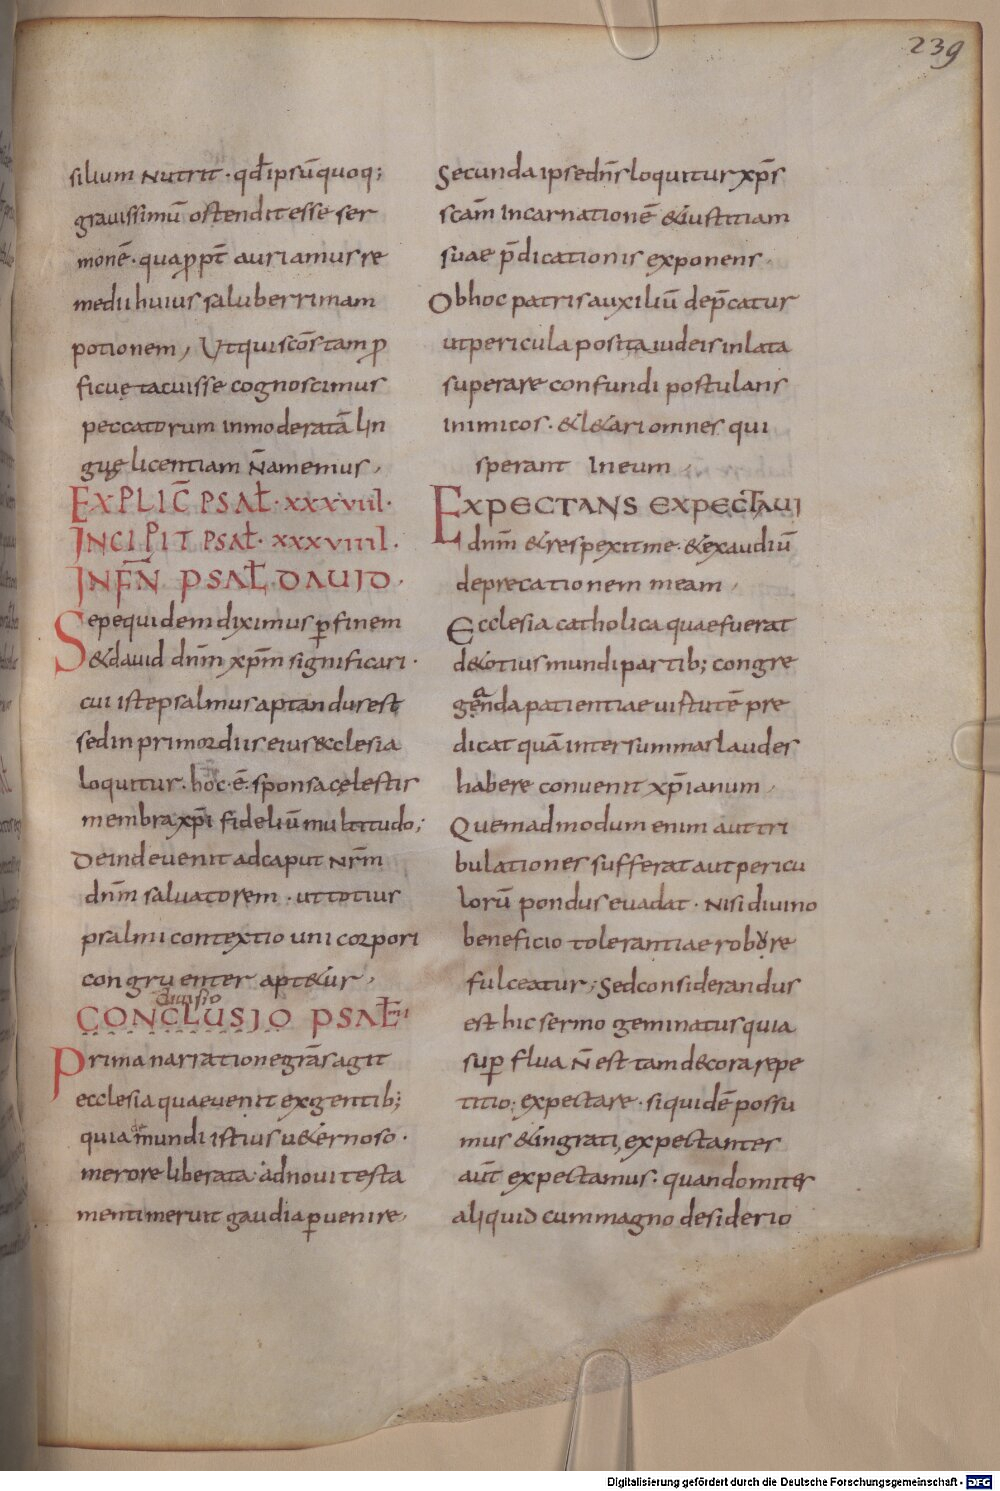 239
silium nutrit · qd̄ ipsū quoq;
grauissimū ostendit esse ser
monē · quap̄pt̄ auriamus re
medii huius saluberrimam
potionem, Ut qui scōs tam p̄
ficuę tacuisse cognoscimus
peccatorum inmoderatā lin
guę licentiam n̄ amemus,
EXPLIC̄ PSAL̄ · XXXVIII ·
INCIPIT PSAL̄ · XXXVIIII ·
IN FĪN PSAL̄ DAUID ·
Sepe quidem diximus p̄ finem
& dauid dn̄m xp̄m significari ·
cui iste psalmus aptandus est
sed in primordiis eius ecclesia
loquitur · hoc · ē · sponsa cęlestis
membra xp̄i fidelium multitudo;
Deinde uenit ad caput nr̄m
dn̄m saluatorem · ut totius
psalmi contextio uni corpori
congruenter apt&ur,
diuisio
CONCLUSIO PSAL̄MI
Prima narratione grās agit
ecclesia quae uenit ex gentib;
quia de mundi istius u&ernoso ·
merore liberata · ad noui testa
menti meruit gaudia p̄uenire,
Secunda ipse dn̄s loquitur xp̄s
scām incarnationē & iustitiam
suae p̄dicationis exponens ·
Ob hoc patris auxiliū dep̄catur
ut pericula posita iudeis inlata
superare confundi postulans
inimicos · & l&ari omnes qui
sperant In eum ,
EXPECTANS EXPECTAUI
dn̄m & respexit me · & exaudiū
deprecationem meam ,
Ecclesia catholica quae fuerat
de totius mundi partib; congre
ganda patientiae uirtutē pre
dicat quā inter summas laudes
habere conuenit xp̄ianum ,
Quemadmodum enim aut tri
bulationes sufferat aut pericu
lorū pondus euadat · nisi diuino
beneficio tolerantiae robore
fulceatur; Sed considerandus
est hic sermo geminatus quia
sup̄flua n̄ est tam decora repe
titio · expectare · siquidē possu
mus & ingrati, expectantes
aūt expectamus · quando mites
aliquid cum magno desiderio
Digitalisierung gefördert durch die Deutsche Forschungsgemeinschaft - DFG